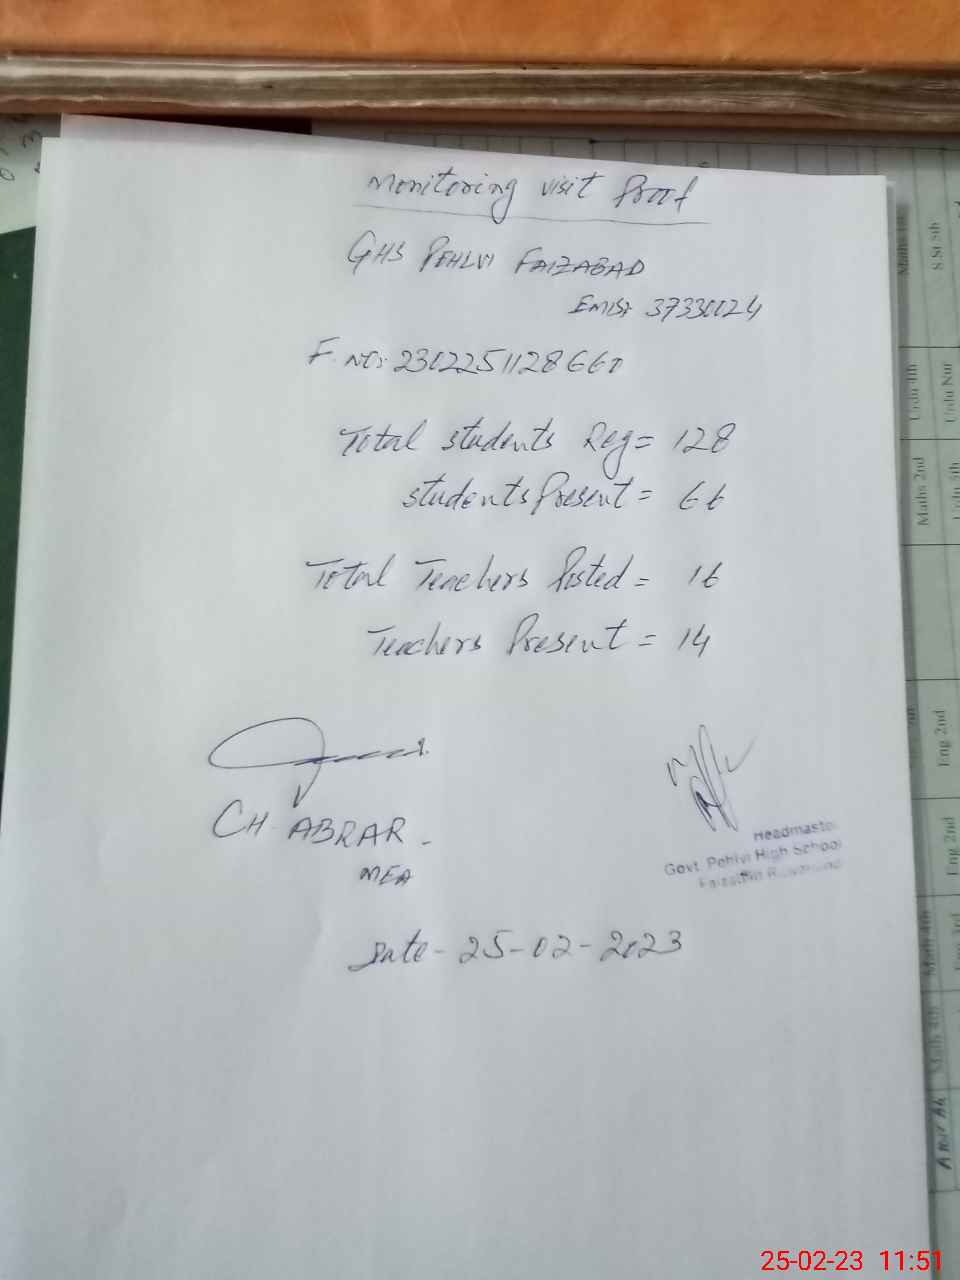 Monitoring visit Proof
GHS PEHLVI FAIZABAD
EMIS# 37330024
F. NO: 2302251128660
Total students Reg = 128
students Present = 66
Total Teachers Posted = 16
Teachers Present = 14
CH ABRAR.
MEA
Headmaste
Govt. Pehlvi High School
Date - 25-02-2023
Maths 1st
S.St 5th
Urdu 4th
Urdu Nur
Maths 2nd
Urdu 5th
Eng 2nd
Eng 2nd
Math 4th
Eng 3rd
Math 4th
25-02-23 11:51